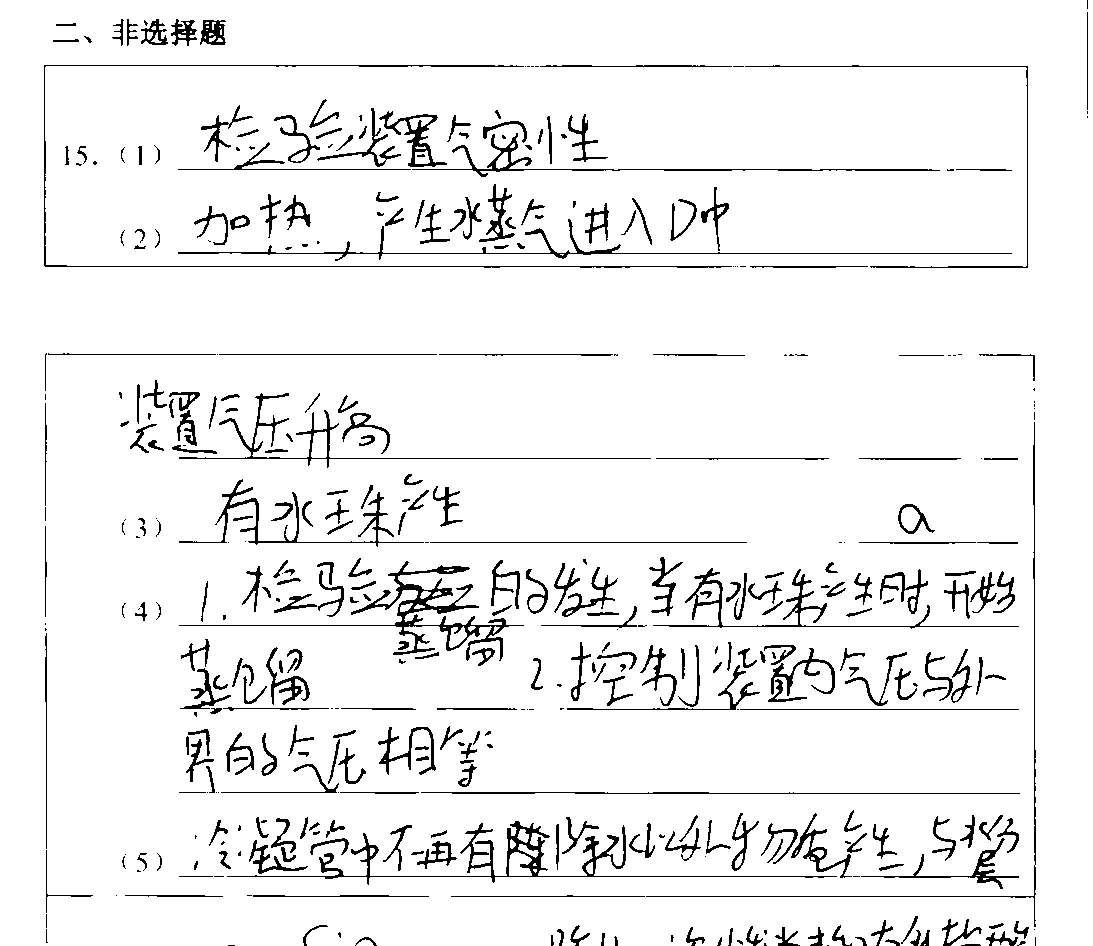 二、非选择题
15.（1） 检验装置气密性
（2） 加热，产生水蒸气进入D中
装置气压升高
（3） 有水珠产生 a
（4） 1. 检验蒸馏的发生，当有水珠产生时，开始
蒸馏 2. 控制装置内气压与外
界的气压相等
（5） 冷凝管中不再有除水以外物质产生，与水分层